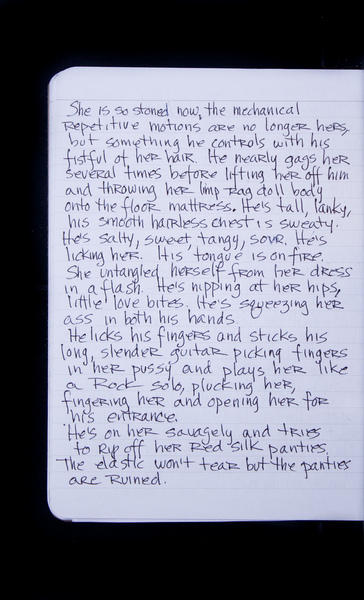 She is so stoned now, the mechanical
repetitive motions are no longer hers,
but something he controls with his
fistful of her hair. He nearly gags her
several times before lifting her off him
and throwing her limp rag doll body
onto the floor mattress. He's tall, lanky,
his smooth hairless chest is sweaty.
He's salty, sweet, tangy, sour. He's
licking her. His tongue is on fire.
She untangled herself from her dress
in a flash. He's nipping at her hips,
little love bites. He's squeezing her
ass in both his hands.
He licks his fingers and sticks his
long, slender guitar picking fingers
in her pussy and plays her like
a Rock solo, plucking her,
fingering her and opening her for
his entrance.
He's on her savagely and tries
to rip off her red silk panties.
The elastic won't tear but the panties
are ruined.